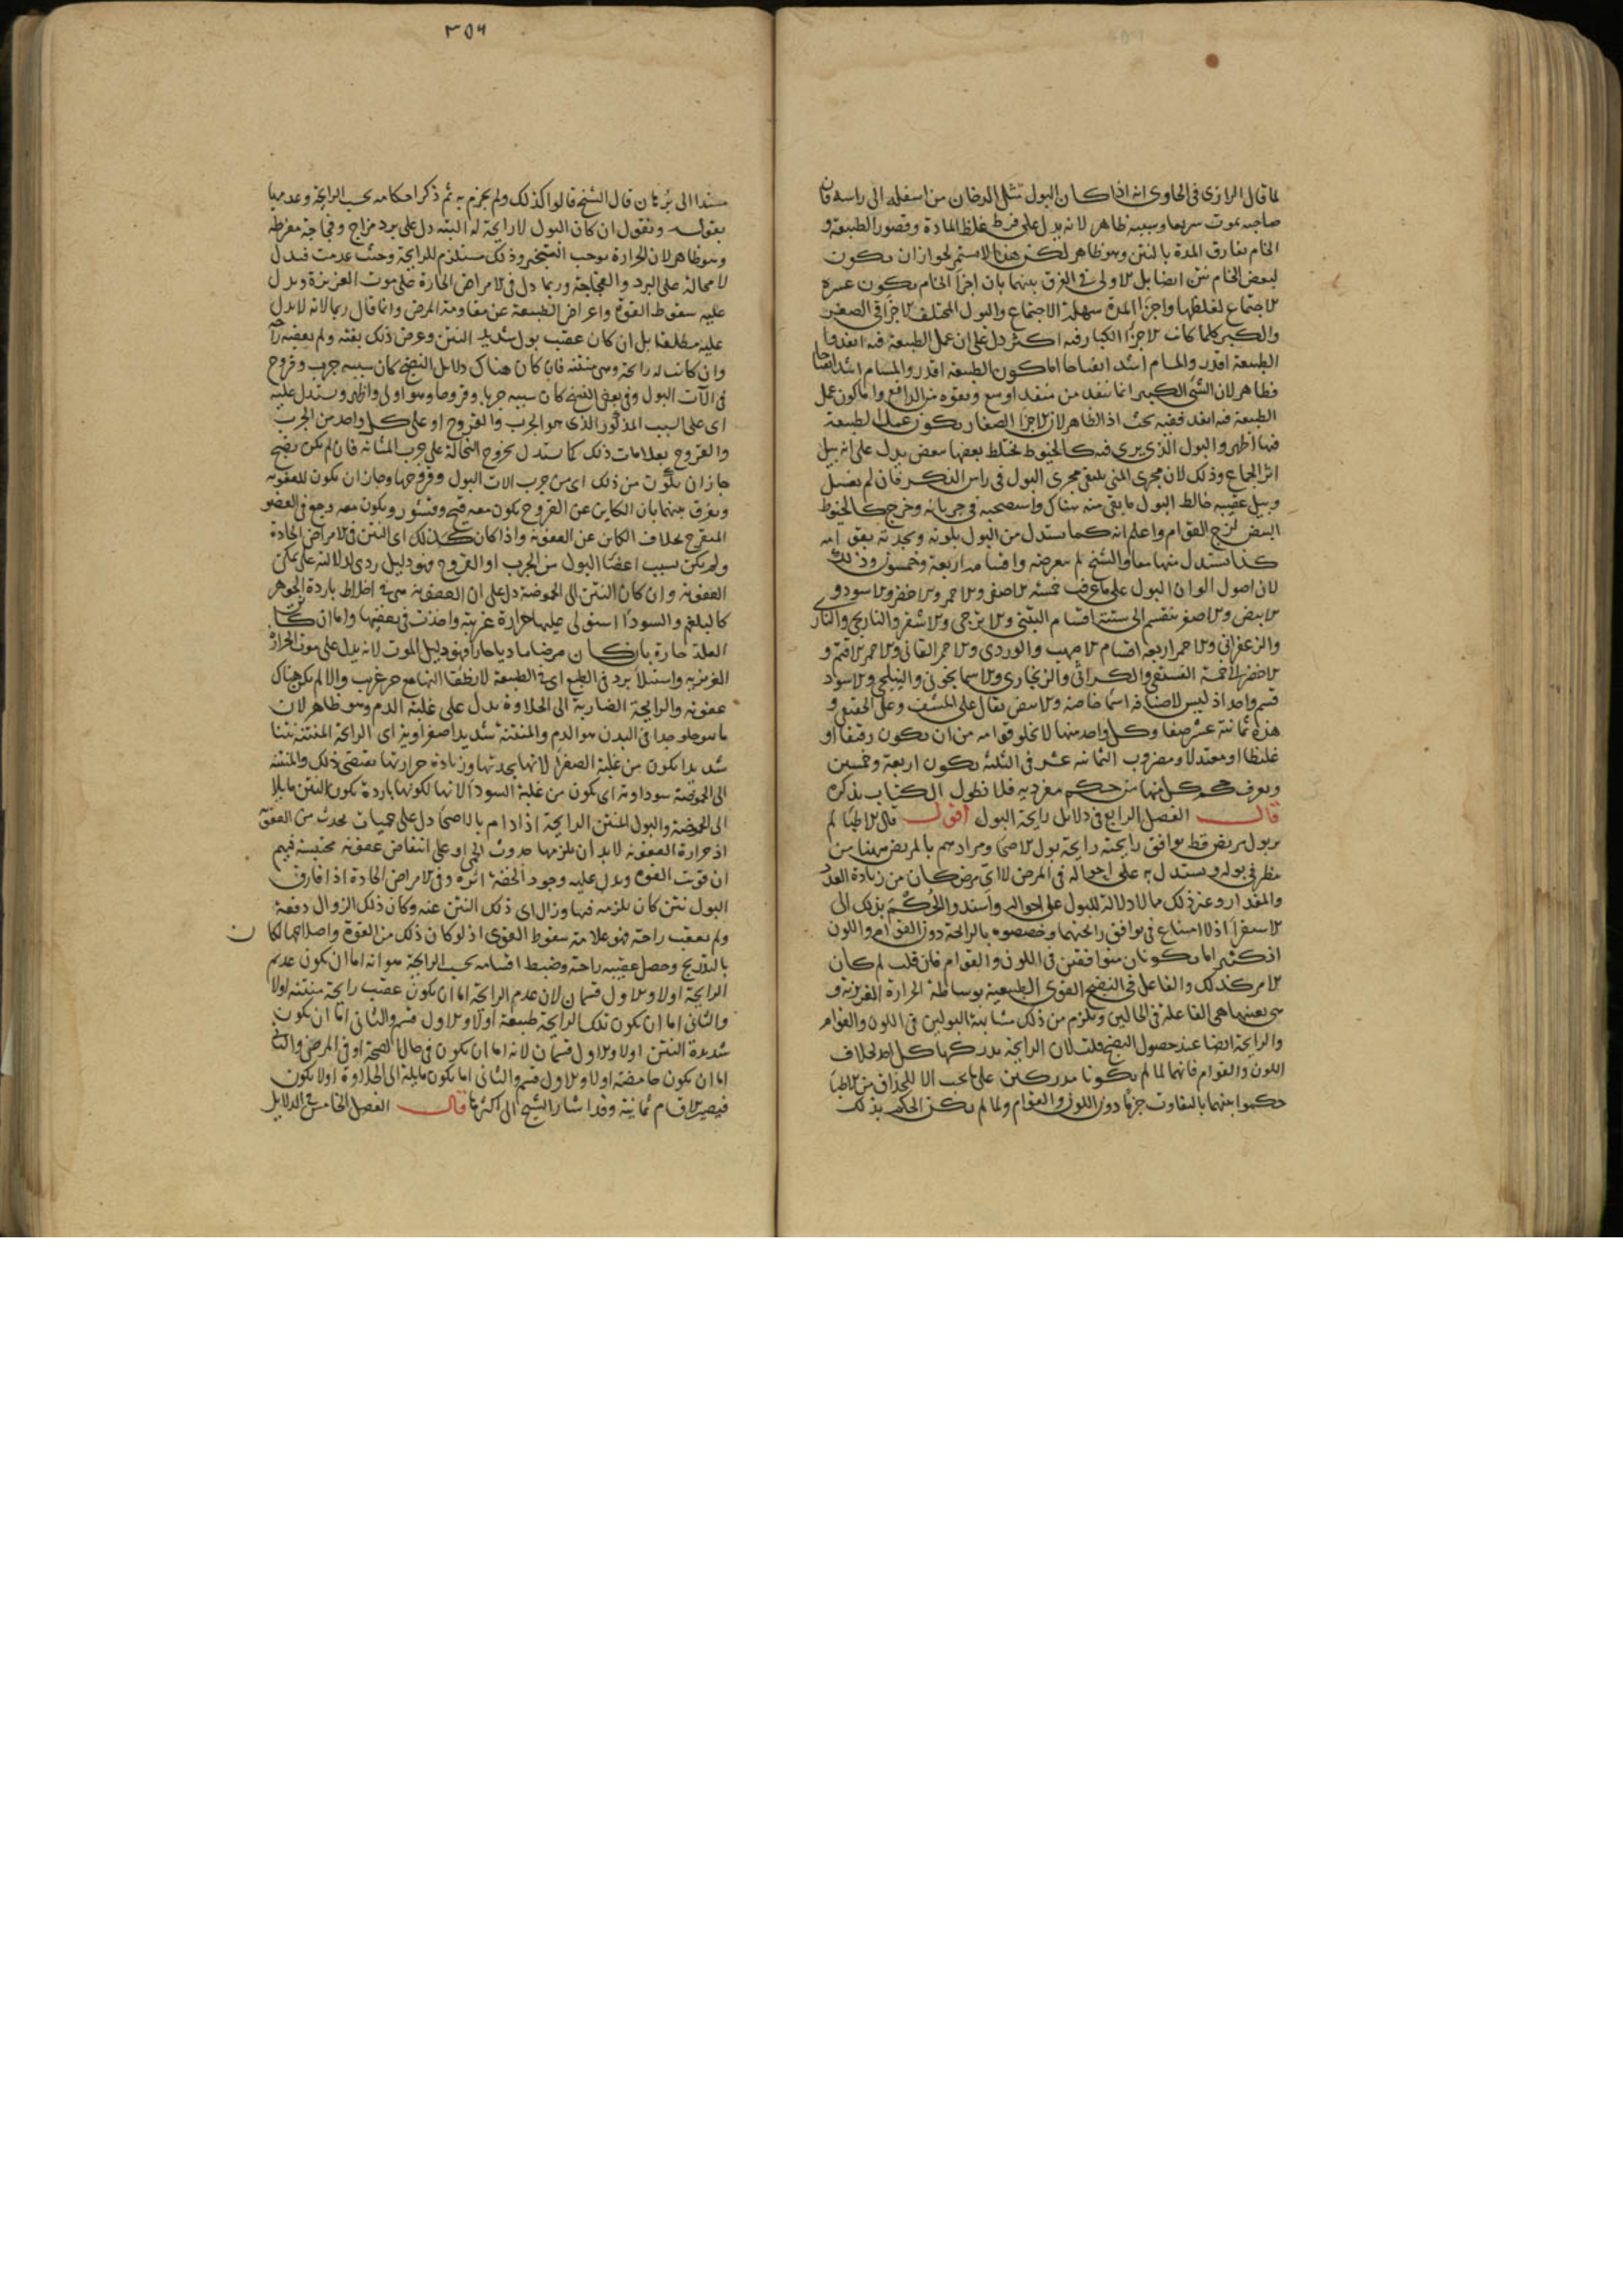 لما قال الرازى فى الحاوى انه اذا كان البول مثل الدخان من اسفله الى راسه فان
صاحبه يموت سريعا وسببه ظاهر لانه يدل على فرط غلظ المادة وقصور الطبيعة و
الخام يفارق المدة بالنتن وهو ظاهر لكن هذا لا يستمر لجواز ان يكون
لبعض الخام نتن ايضا بل الاولى فى الفرق بينهما بان اجزا الخام يكون عسرة
الاجتماع لغلظها واجزا المدة سهلة الاجتماع والبول المختلف الاجزا فى الصغر
والكبر كلما كانت الاجزا الكبار فيه اكثر دل على ان عمل الطبيعة فيه انفذ واما
الطبيعة اقدر والمسام اشد انفتاحا اما كون الطبيعة اقدر والمسام اشد انفتاحا
فظاهر لان الشى الكبير انما ينفذ من منفذ اوسع وبقوة من الدافع واما كون عمل
الطبيعة فيه انفذ ففيه بحث اذ الظاهر ان الاجزا الصغار يكون عمل الطبيعة
فيها اظهر والبول الذى يرى فيه كالخيوط مختلط بعضها ببعض يدل على انه بيل
اثر الجماع وذلك لان مجرى المنى يلتقى مجرى البول فى راس الذكر فان لم يغسل
وبيل عقيبه خالط البول ما بقى منه هناك واستصحبه فى جريانه وخرج كالخيوط
البيض لزج القوام واعلم انه كما يستدل من البول بلونه وبحدته بقوامه
كذا يستدل منها معا والشيخ لم يتعرضه واقسامه اربعة وخمسون وذلك
لان اصول الوان البول على ما عرف خمسة الاصفر والاحمر والاخضر والاسود و
الابيض والاصفر ينقسم الى ستة اقسام التبنى والاترجى والاشقر والنارنجى والنارى
والزعفرانى والاحمر اربعة اقسام الاصهب والوردى والاحمر القانى والاحمر الاقتم و
الاخضر الى خمسة الفستقى والكراثى والزنجارى والاسمانجونى والنيلجى والاسود
قسم واحد اذ ليس لاصنافه اسما خاصة والابيض يقال على المشف وعلى الحقيقى و
هذه ثمانية عشر صنفا وكل واحد منها لا يخلو قوامه من ان يكون رقيقا او
غليظا او معتدلا ومضروب الثمانية عشر فى الثلثة يكون اربعة وخمسين
ويعرف حكم كل منها من حكم مفرديه فلا نطول الكتاب بذكره
قال الفصل الرابع فى دلائل رايحة البول اقول قال الاطبا لم
ير بول مريض قط يوافق رايحته رايحة بول الاصحا ومرادهم بالمريض ههنا من
ينظر فى بوله ويستدل به على احواله فى المرض لا اى مرض كان من زيادة العدد
والمقدار وغير ذلك مما لا دلالة للبول على احواله واسندوا الحكم بذلك الى
الاستقرا اذ لا امتناع فى توافق رايحتهما وخصصوه بالرايحة دون القوام واللون
اذ كثيرا ما يكونان متوافقين فى اللون والقوام فان قلت لم كان
الامر كذلك والفاعل فى النضج القوى الطبيعية بوساطة الحرارة الغريزية و
هى بعينها هى الفاعلة فى الحالين ويلزم من ذلك مشابهة البولين فى اللون والقوام
والرايحة ايضا عند حصول النضج قلت لان الرايحة يدركها كل احد بخلاف
اللون والقوام فانهما لما لم يكونا مدركين على ما يجب الا للحذاق من الاطبا
حكموا بينهما بالتفاوت جزما دون اللون والقوام ولما لم يكن الحكم بذلك
٣٥٦
مستندا الى برهان قال الشيخ قالوا كذلك ولم يجزم به ثم ذكر احكامه بحسب الرايحة وعدمها
بقوله ونقول ان كان البول لا رايحة له البتة دل على برد مزاج وفجاجة مفرطة
وهو ظاهر لان الحرارة توجب التبخير وذلك مستلزم للرايحة وحيث عدمت فيدل
لا محالة على البرد والفجاجة وربما دل فى الامراض الحارة على موت الغريزة ويدل
عليه سقوط القوة واعراض الطبيعة عن مقاومة المرض وانما قال ربما لانه لا يدل
عليه مطلقا بل ان كان عقيب بول شديد النتن وعرض ذلك بغتة ولم يعقبه راحة
وان كانت له رايحة وهى منتنة فان كان هناك دلايل النضج كان سببه جرب وقروح
فى الات البول وفى بعض النسخ كان سببه جربا وقروحا وهو اولى واظهر ويستدل عليه
اى على السبب المذكور الذى هو الجرب والقروح او على كل واحد من الجرب
والقروح بعلامات ذلك كما يستدل بخروج النخالة على جرب المثانة فان لم يكن نضج
جاز ان يكون من ذلك اى من جرب الات البول وقروحها وجاز ان يكون للعفونة
ويفرق بينهما بان الكاين عن القروح يكون معه قيح وقشور ويكون معه وجع فى العضو
المتقرح بخلاف الكاين عن العفونة واذا كان كذلك اى النتن فى الامراض الحادة
ولم يكن بسبب اعضا البول من الجرب او القروح فهو دليل ردى لدلالته على تمكن
العفونة وان كان النتن الى الحموضة دل على ان العفونة هى فى اخلاط باردة الجوهر
كالبلغم والسودا استولى عليها حرارة غريبة واخذت فى تعفينها واما ان كانت
العلة حارة بان كان مرضا ماديا حارا فهو دليل الموت لانه يدل على موت الحرارة
الغريزية واستيلا برد فى الطبع اى فى الطبيعة لانطفا النها مع حر غريب والا لم يكن هناك
عفونة والرايحة الضاربة الى الحلاوة يدل على غلبة الدم وهو ظاهر لان
ما هو حلو جدا فى البدن هو الدم والمنتنة شديدا صفراوية اى الرايحة المنتنة نتنا
شديدا يكون من غلبة الصفرا لانها بحدتها وزيادة حرارتها تقتضى ذلك والمنتنة
الى الحموضة سوداوية اى يكون من غلبة السودا لانها لكونها باردة يكون النتن مايلا
الى الحموضة والبول المنتن الرايحة اذا دام بالاصحا دل على حميات تحدث من العفونة
اذ حرارة العفونة لا بد ان يلزمها حدوث الحمى او على انتفاض عفونة محتبسة فيهم
ان قويت القوة ويدل عليه وجود الخفة اثره وفى الامراض الحادة اذا فارق
البول نتن كان يلزمه فيها وزال اى ذلك النتن عنه وكان ذلك الزوال دفعة
ولم يعقب راحة فهو علامة سقوط القوى اذ لو كان ذلك من القوة واصلاحها لكان
بالتدريج وحصل عقيبه راحة وضبط اقسامه بحسب الرايحة هو انه اما ان يكون عديم
الرايحة او لا والاول قسمان لان عدم الرايحة اما ان يكون عقيب رايحة منتنة او لا
والثانى اما ان يكون تلك الرايحة طبيعة او لا والاول قسم والثانى اما ان يكون
شديدة النتن او لا والاول قسمان لانه اما ان يكون فى حال الصحة او فى المرض والثانى
اما ان يكون حامضة او لا والاول قسم والثانى اما يكون مايلة الى الحلاوة او لا يكون
فيصير الاقسام ثمانية وقد اشار الشيخ الى اكثرها قال الفصل الخامس فى الدلايل